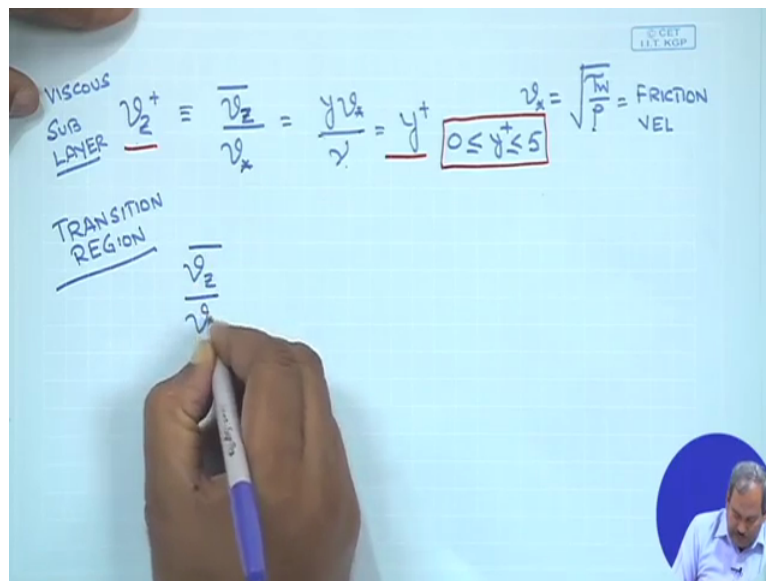 © CET
I.I.T. KGP
VISCOUS
SUB
LAYER
v_z⁺ ≡ v̄_z / v_* = y v_* / ν = y⁺
0 ≤ y⁺ ≤ 5
v_* = √(τ_w / ρ) = FRICTION
VEL
TRANSITION
REGION
v̄_z
v_*